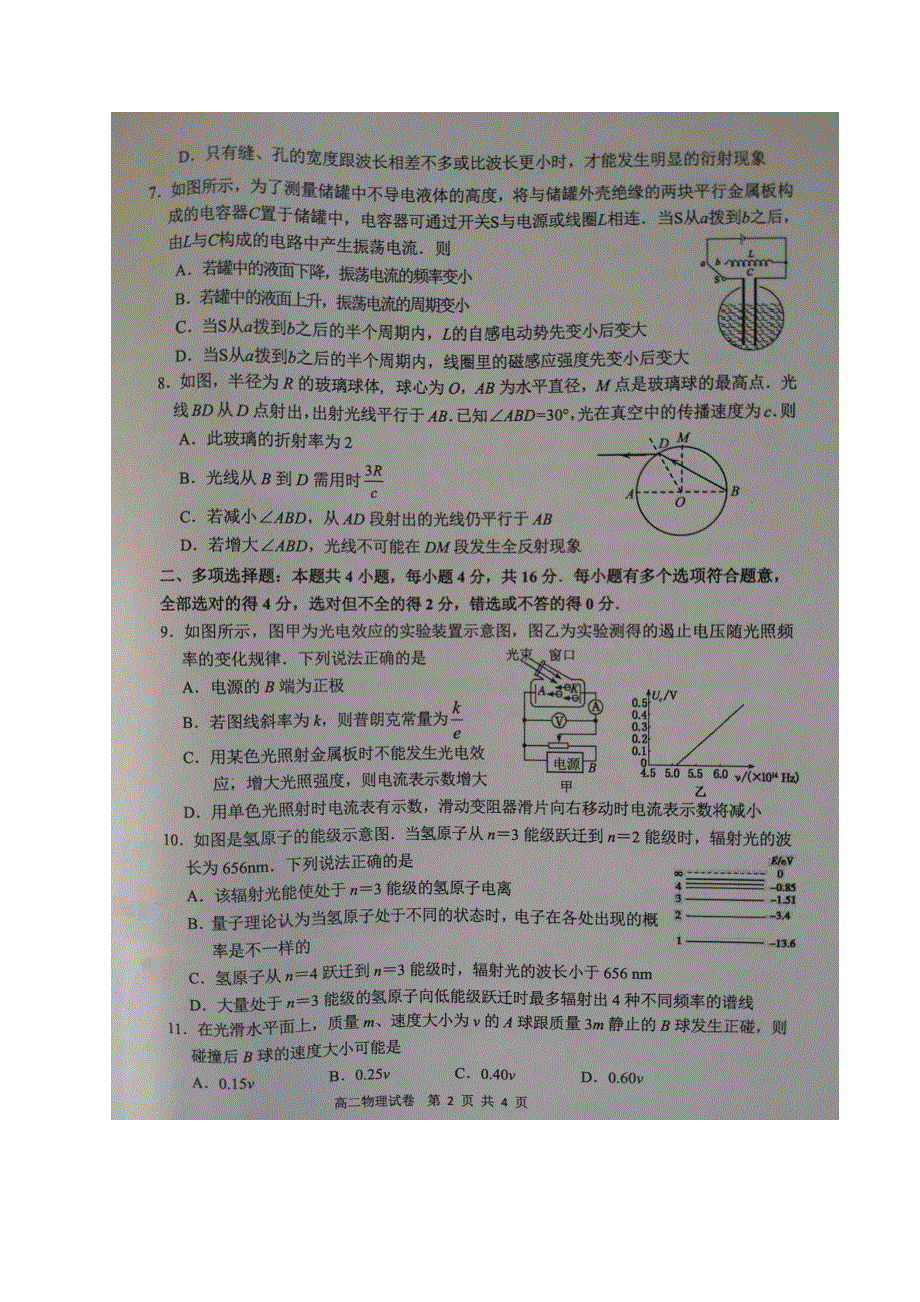 D．只有缝、孔的宽度跟波长相差不多或比波长更小时，才能发生明显的衍射现象
7．如图所示，为了测量储罐中不导电液体的高度，将与储罐外壳绝缘的两块平行金属板构
成的电容器C置于储罐中，电容器可通过开关S与电源或线圈L相连．当S从a拨到b之后，
由L与C构成的电路中产生振荡电流．则
A．若罐中的液面下降，振荡电流的频率变小
B．若罐中的液面上升，振荡电流的周期变小
C．当S从a拨到b之后的半个周期内，L的自感电动势先变小后变大
D．当S从a拨到b之后的半个周期内，线圈里的磁感应强度先变小后变大
a b L
S C
8．如图，半径为 R 的玻璃球体，球心为 O，AB 为水平直径，M 点是玻璃球的最高点．光
线 BD 从 D 点射出，出射光线平行于 AB．已知∠ABD=30°，光在真空中的传播速度为 c．则
A．此玻璃的折射率为 2
B．光线从 B 到 D 需用时 3R/c
C．若减小∠ABD，从 AD 段射出的光线仍平行于 AB
D．若增大∠ABD，光线不可能在 DM 段发生全反射现象
D M
A O B
二、多项选择题：本题共 4 小题，每小题 4 分，共 16 分．每小题有多个选项符合题意，
全部选对的得 4 分，选对但不全的得 2 分，错选或不答的得 0 分．
9．如图所示，图甲为光电效应的实验装置示意图，图乙为实验测得的遏止电压随光照频
率的变化规律．下列说法正确的是
A．电源的 B 端为正极
B．若图线斜率为 k，则普朗克常量为 k/e
C．用某色光照射金属板时不能发生光电效
应，增大光照强度，则电流表示数增大
D．用单色光照射时电流表有示数，滑动变阻器滑片向右移动时电流表示数将减小
光束 窗口
A K
A
V
电源 B
甲
Uc/V
0.5
0.4
0.3
0.2
0.1
0
4.5 5.0 5.5 6.0 ν/(×10¹⁴ Hz)
乙
10．如图是氢原子的能级示意图．当氢原子从 n＝3 能级跃迁到 n＝2 能级时，辐射光的波
长为 656nm．下列说法正确的是
A．该辐射光能使处于 n＝3 能级的氢原子电离
B．量子理论认为当氢原子处于不同的状态时，电子在各处出现的概
率是不一样的
C．氢原子从 n＝4 跃迁到 n＝3 能级时，辐射光的波长小于 656 nm
D．大量处于 n＝3 能级的氢原子向低能级跃迁时最多辐射出 4 种不同频率的谱线
E/eV
∞ 0
4 −0.85
3 −1.51
2 −3.4
1 −13.6
11．在光滑水平面上，质量 m、速度大小为 v 的 A 球跟质量 3m 静止的 B 球发生正碰，则
碰撞后 B 球的速度大小可能是
A．0.15v B．0.25v C．0.40v D．0.60v
高二物理试卷 第 2 页 共 4 页